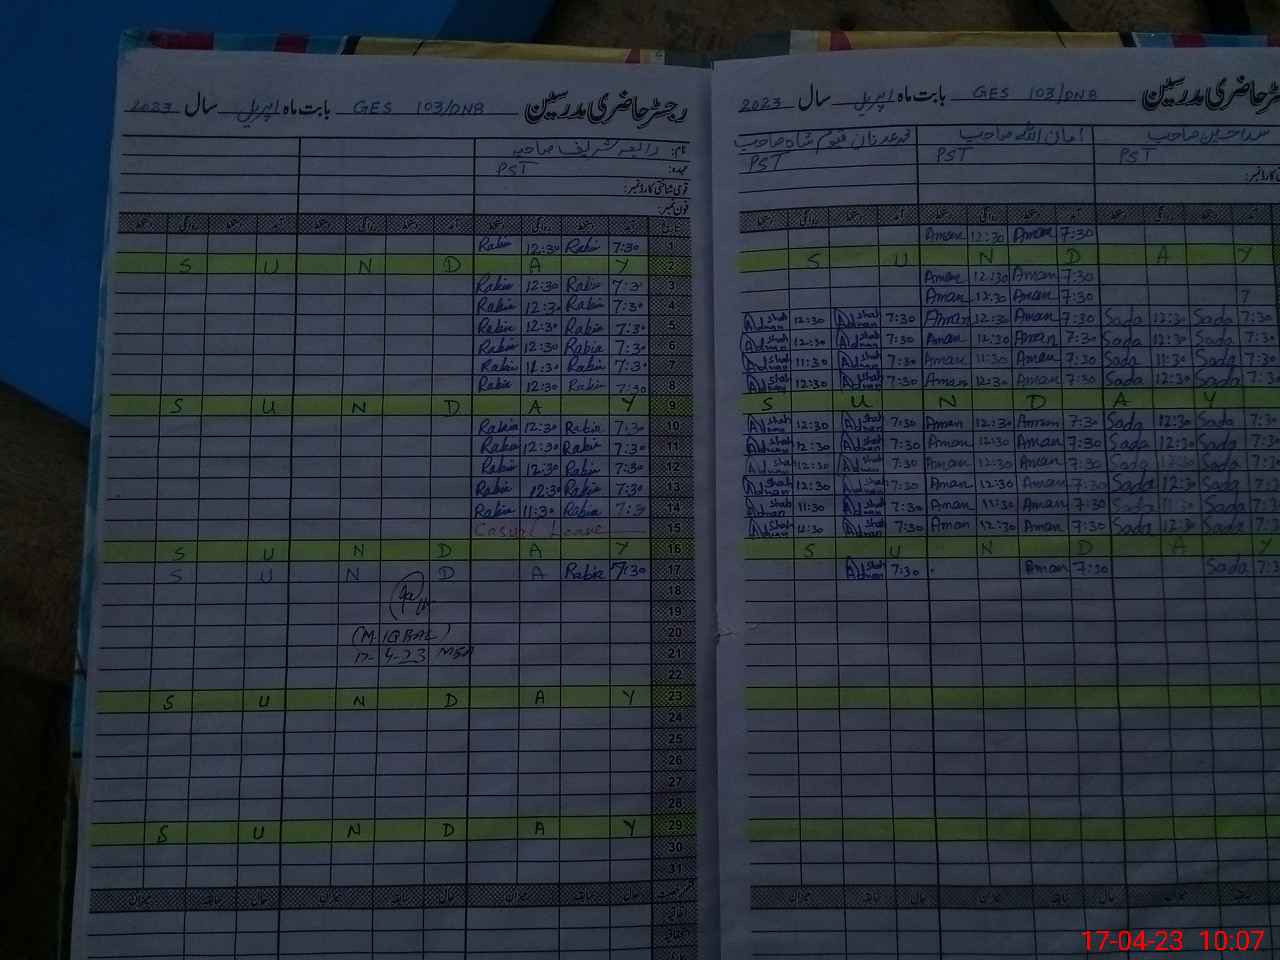 رجسٹر حاضری مدرسین GES 103/DNB بابت ماہ اپریل سال 2023
نام: رابعہ شریف صاحبہ
عہدہ: PST
قومی شناختی کارڈ نمبر:
فون نمبر:
1 7:30 Rabia 12:30 Rabia
2 S U N D A Y
3 7:30 Rabia 12:30 Rabia
4 7:30 Rabia 12:30 Rabia
5 7:30 Rabia 12:30 Rabia
6 7:30 Rabia 12:30 Rabia
7 7:30 Rabia 11:30 Rabia
8 7:30 Rabia 12:30 Rabia
9 S U N D A Y
10 7:30 Rabia 12:30 Rabia
11 7:30 Rabia 12:30 Rabia
12 7:30 Rabia 12:30 Rabia
13 7:30 Rabia 12:30 Rabia
14 7:30 Rabia 11:30 Rabia
15 Casual Leave
16 S U N D A Y
17 7:30 Rabia S U N D A Y
18
19
20 (M. IQBAL)
21 17-4-23 MEA
22
23 S U N D A Y
24
25
26
27
28
29 S U N D A Y
30
31
میزان سابقہ حال میزان سابقہ حال میزان سابقہ حال
رجسٹر حاضری مدرسین GES 103/DNB بابت ماہ اپریل سال 2023
صاحب امان اللہ صاحب محمد عدنان شاہ صاحب
PST PST PST
7:30 Aman 12:30 Aman
S U N D A Y
7:30 Aman 12:30 Aman
7:30 Aman 12:30 Aman
7:30 Sada 12:30 Sada 7:30 Aman 12:30 Aman 7:30 Adnan Shah 12:30 Adnan Shah
7:30 Sada 12:30 Sada 7:30 Aman 12:30 Aman 7:30 Adnan Shah 12:30 Adnan Shah
7:30 Sada 11:30 Sada 7:30 Aman 11:30 Aman 7:30 Adnan Shah 11:30 Adnan Shah
7:30 Sada 12:30 Sada 7:30 Aman 12:30 Aman 7:30 Adnan Shah 12:30 Adnan Shah
S U N D A Y
7:30 Sada 12:30 Sada 7:30 Aman 12:30 Aman 7:30 Adnan Shah 12:30 Adnan Shah
7:30 Sada 12:30 Sada 7:30 Aman 12:30 Aman 7:30 Adnan Shah 12:30 Adnan Shah
7:30 Sada 12:30 Sada 7:30 Aman 12:30 Aman 7:30 Adnan Shah 12:30 Adnan Shah
7:30 Sada 12:30 Sada 7:30 Aman 12:30 Aman 7:30 Adnan Shah 12:30 Adnan Shah
7:30 Sada 11:30 Sada 7:30 Aman 11:30 Aman 7:30 Adnan Shah 11:30 Adnan Shah
7:30 Sada 12:30 Sada 7:30 Aman 12:30 Aman 7:30 Adnan Shah 12:30 Adnan Shah
S U N D A Y
7:30 Sada 7:30 Aman 7:30 Adnan Shah
17-04-23 10:07